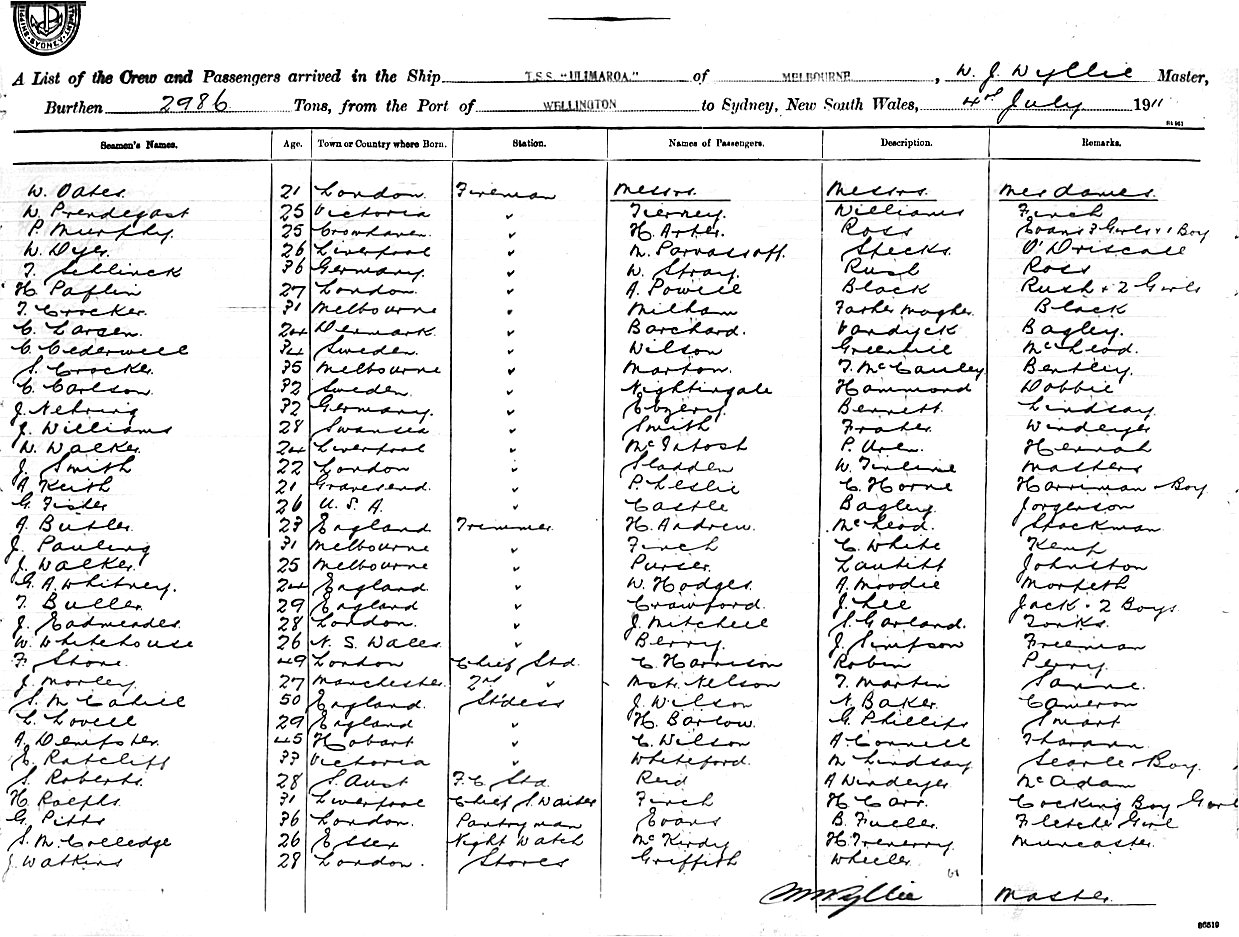 SHIPPING SYDNEY
A List of the Crew and Passengers arrived in the Ship T.S.S. "ULIMAROA." of MELBOURNE, W. J. Wyllie Master,
Burthen 2986 Tons, from the Port of WELLINGTON to Sydney, New South Wales, 4th July 1911
Seamen's Names. Age. Town or Country where Born. Station. Names of Passengers. Description. Remarks.
W. Oates 21 London Fireman Messrs. Messrs. Mesdames.
W. Prendegast 25 Victoria " Tierney. Williams Finch
P. Murphy. 25 " H. Arber. Ross Evans 3 Girls + 1 Boy
W. Dyer. 26 Liverpool " Specks O'Driscoll
T. 36 Germany. " W. Stray. Rush Ross
H. Paflin 27 London " A. Powell Black Rush + 2 Girls
T. Crocker. 31 Melbourne " Milham Father Black
C. Larsen. 24 Denmark. " Barchard. Vandyck Bagley.
C. Cederwell 34 Sweden. " Wilson Greenhill McLeod.
S. Crocker. 35 Melbourne " Marton. T. McCauley Bentley.
C. Carlson. 32 Sweden. " Nightingale Hammond Dobbie
J. Nehring 32 Germany. " Ebzery. Bennett. Lindsay
J. Williams 28 Swansea " Smith Frater Windeyer
W. Walker. 24 Liverpool " McIntosh P. Uren. Hannah
J. Smith 22 London " Sladden W. Masters
A. Keith 21 Gravesend. " P. Leslie C. Horne Harriman + Boy
G. Fister 26 U.S.A. " Castle Bagley. Jorgenson
A. Butler. 23 England Trimmer H. Andrew. McLeod. Stockman.
J. Pauling 31 Melbourne " Finch C. White Kemp
J. Walker. 25 Melbourne " Purser. Lautitt Johnston
G. A. Whitney. 24 England " W. Hodges A. Moodie Morpeth
T. Buller. 29 England " Crawford. J. Lee Jack + 2 Boys
J. Eadmeades 28 London. " J. Mitchell S. Garland. Tonks.
W. Whitehouse 26 N. S. Wales " Berry. J. Simpson Freeman
F. Stone. 49 London Chief Std. C. Harrison Robin Perry.
J. Morley 27 Manchester. 2nd " Nelson T. Martin
S. McCahill 50 England Stdess J. Wilson N. Baker. Cameron
L. Lovell 29 England " H. Barlow. G. Phillips Smart
A. Dempster. 45 Hobart " C. Wilson A Connell
E. Ratcliff 33 Victoria " Whiteford. M Lindsay Searle + Boy.
S. Roberts. 28 S. Aust F.C. Std. Reid A Windeyer McAdam
H. Ralphs. 31 Liverpool Chief S. Waiter Finch H Carr. Cocking Boy Girl
G. Pitts 36 London. Pantryman Evans B. Fuller. Fletcher Girl
S. McColledge 26 Essex Night Watch McKirdy H Trenerry. Muncaster.
J. Watkins 28 London. Stores Griffith Wheeler
61
W J Wyllie Master.
86519